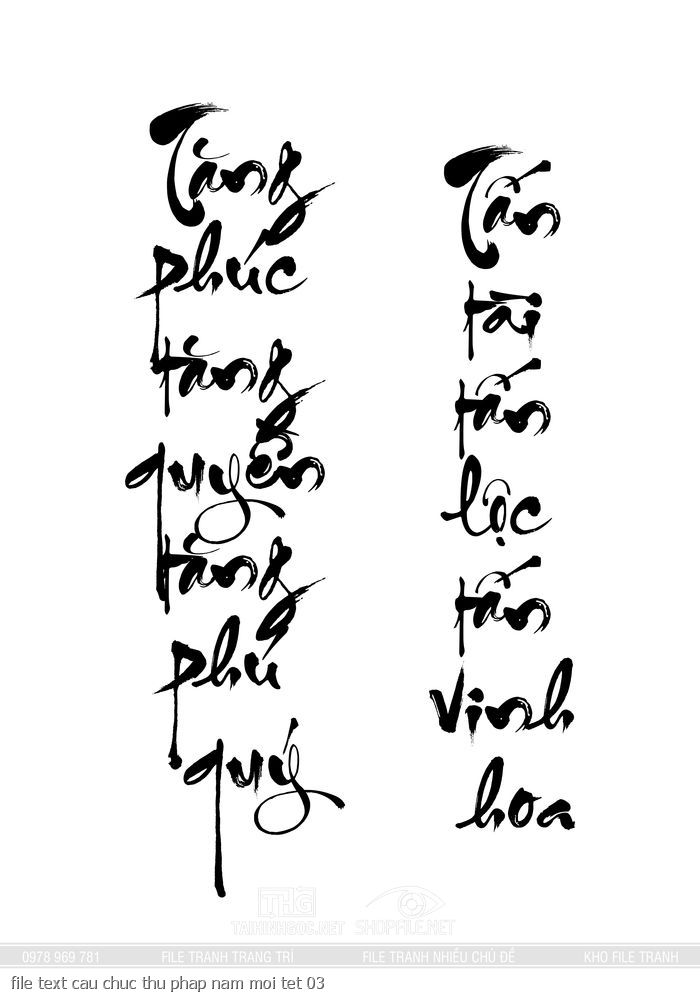 Tăng
phúc
tăng
quyền
tăng
phú
quý
Tấn
tài
tấn
lộc
tấn
vinh
hoa
THG
TAIHINHGOC.NET
SHOPFILE.NET
0978 969 781
FILE TRANH TRANG TRÍ
FILE TRANH NHIỀU CHỦ ĐỀ
KHO FILE TRANH
file text cau chuc thu phap nam moi tet 03